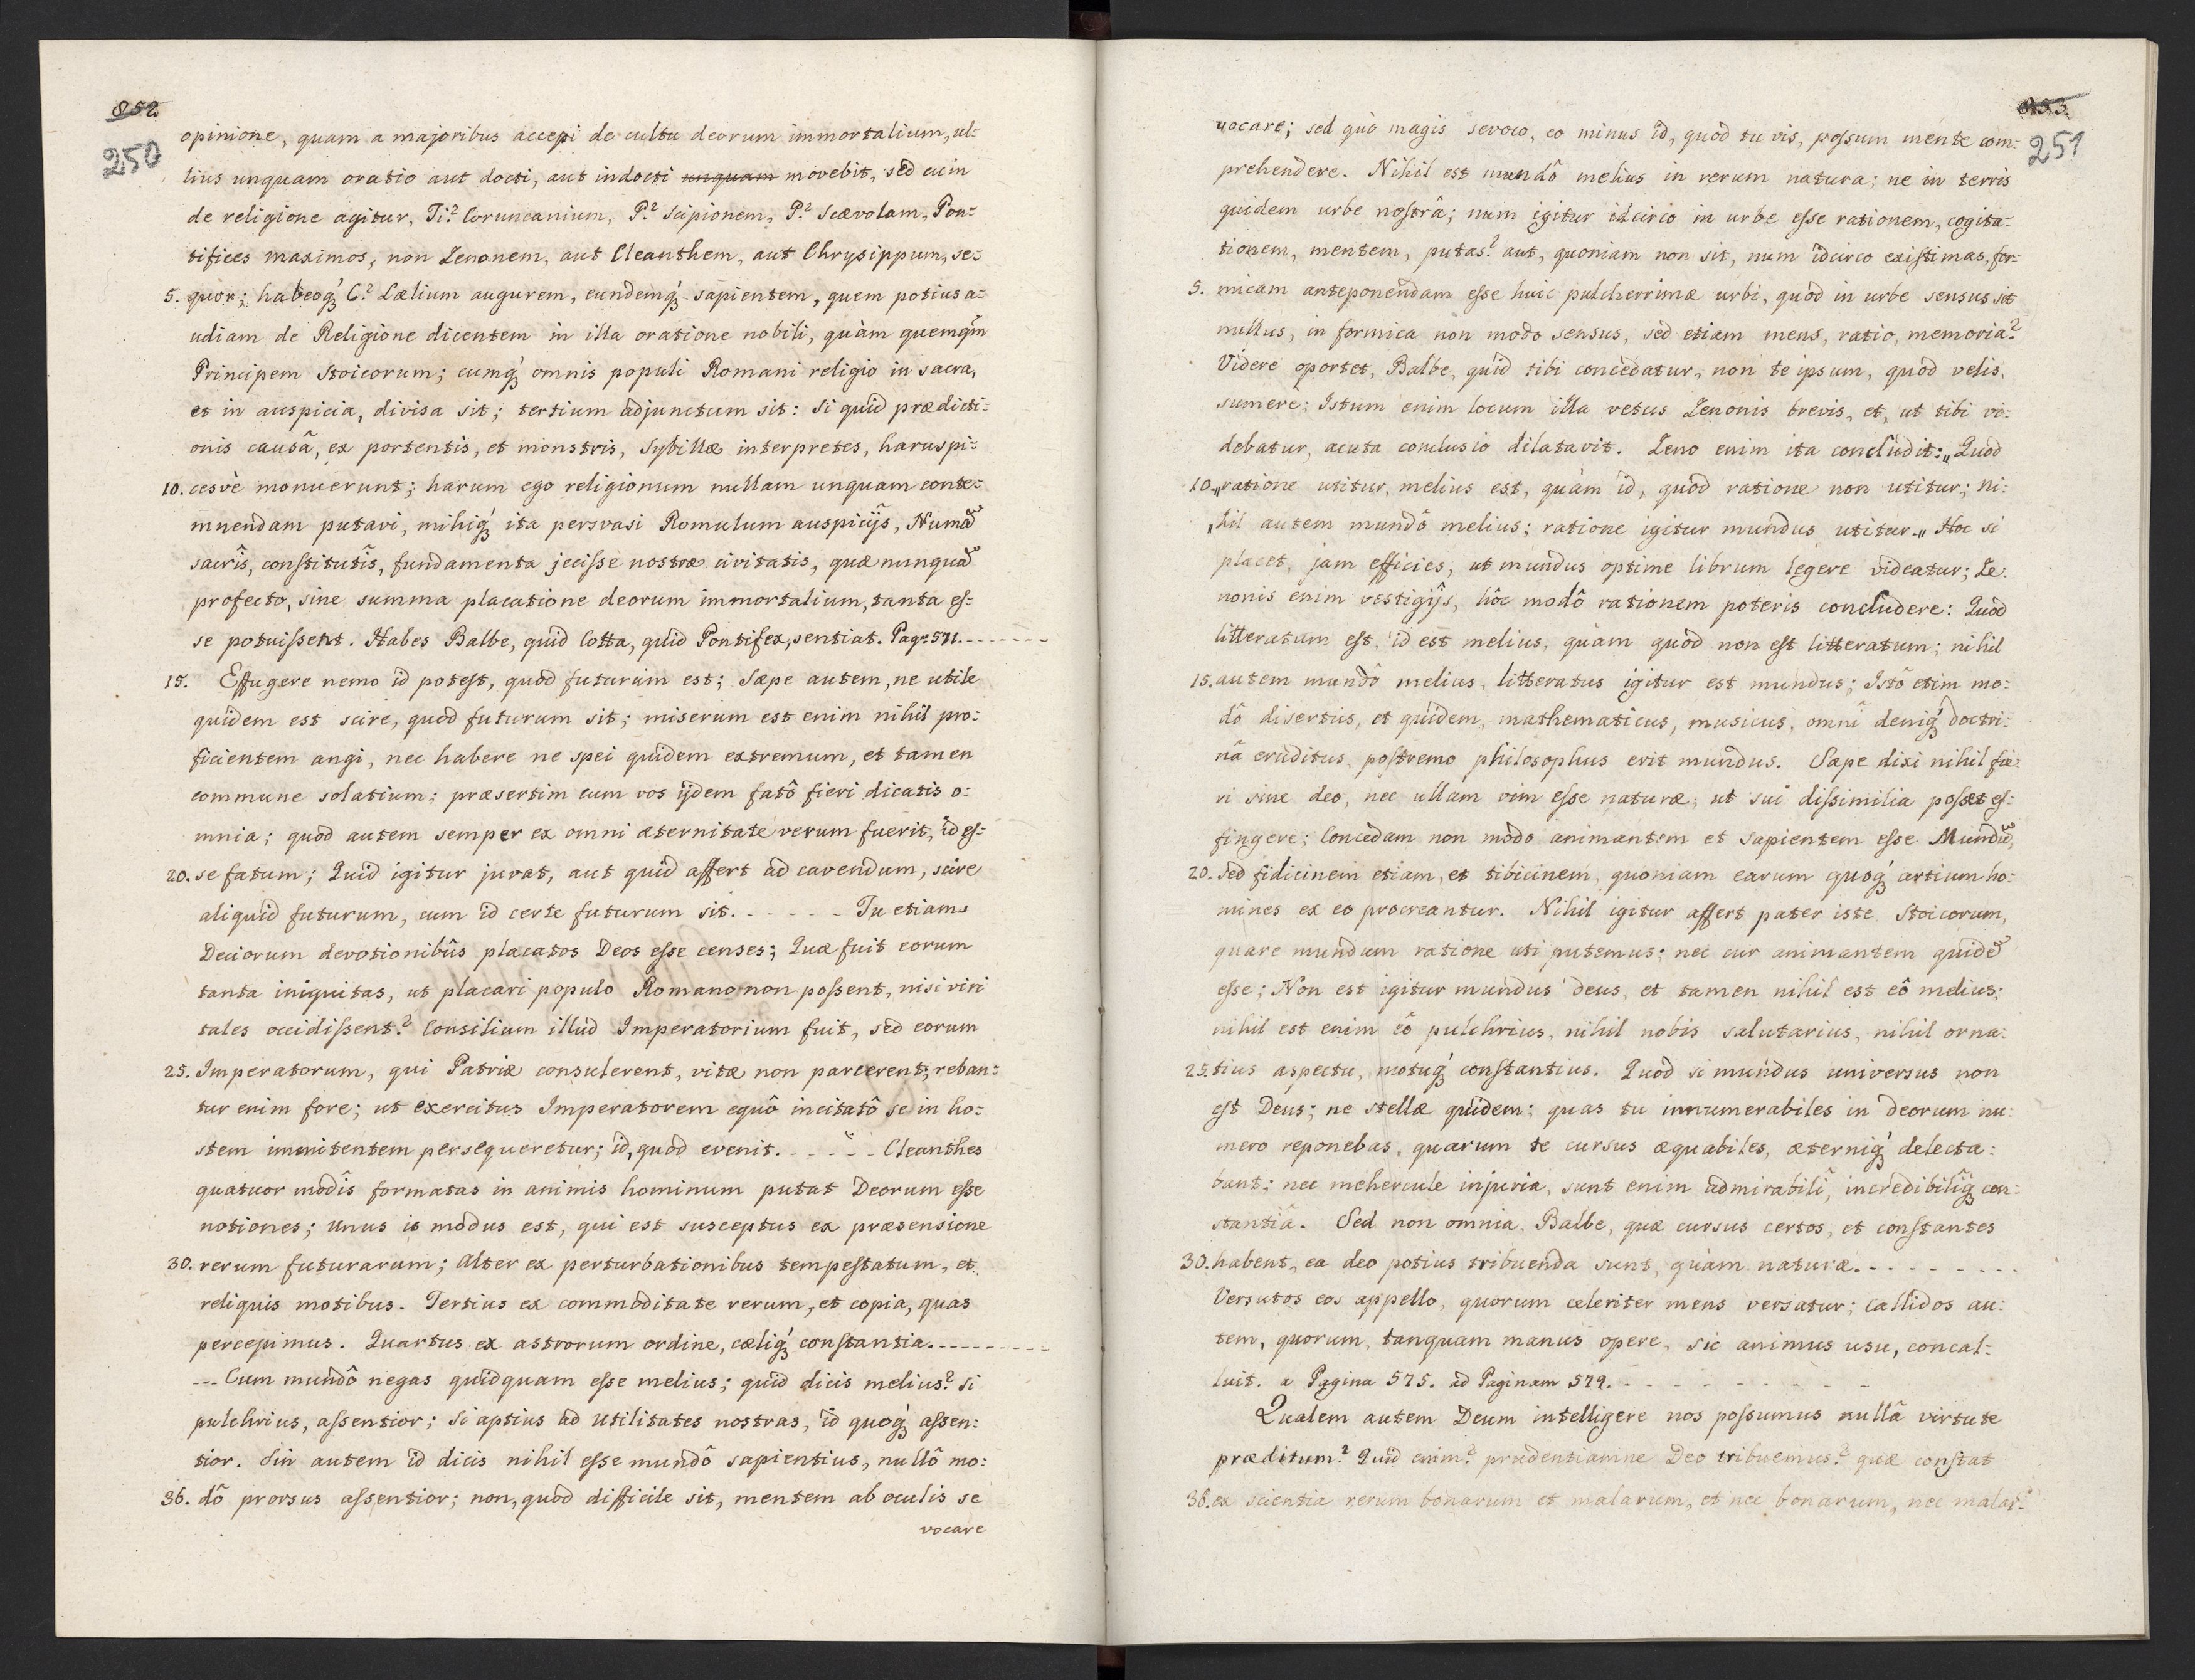 852.
250
opinione, quam a majoribus accepi de cultu deorum immortalium, ul=
lius unquam oratio aut docti, aut indocti unquam movebit, sed cum
de religione agitur, Ti? Coruncanium, P? Scipionem, P? Scævolam, Pon=
tifices maximos, non Zenonem, aut Cleanthem, aut Chrysippum, se=
5. quor; habeoq́ C? Lælium augurem, eundemq́ sapientem, quem potius a=
udiam de Religione dicentem in illa oratione nobili, quàm quemq̃m
Principem Stoicorum; cumq́ omnis populi Romani religio in sacra,
et in auspicia, divisa sit; tertium adjunctum sit: si quid prædicti=
onis causâ, ex portentis, et monstris, Sybillæ interpretes, haruspi=
10. cesvè monuerunt; harum ego religionum nullam unquam conte=
mnendam putavi, mihiq́ ita persvasi Romulum auspicijs, Numã
sacrîs, constitutîs, fundamenta jecisse nostræ civitatis, quæ nunquã
profecto, sine summa placatione deorum immortalium, tanta es=
se potuissent. Habes Balbe, quid Cotta, quid Pontifex, sentiat. Pag: 571. - - - - - -
15. Effugere nemo id potest, quod futurum est; sæpe autem, ne utile
quidem est scire, quod futurum sit; miserum est enim nihil pro=
ficientem angi, nec habere ne spei quidem extremum, et tamen
commune solatium; præsertim cum vos ijdem fatô fieri dicatis o=
mnia; quod autem semper ex omni æternitate verum fuerit, id es=
20. se fatum; Quid igitur juvat, aut quid affert ad cavendum, scire
aliquid futurum, cum id certe futurum sit. - - - - - Tu etiam
Deciorum devotionibûs placatos Deos esse censes; Quæ fuit eorum
tanta iniquitas, ut placari populo Romano non possent, nisi viri
tales occidissent? Consilium illud Imperatorium fuit, sed eorum
25. Imperatorum, qui Patriæ consulerent, vitæ non parcerent; reban=
tur enim fore; ut exercitus Imperatorem equô incitatô se in ho=
stem immitentem persequeretur; id, quod evenit. - - - - - Cleanthes
quatuor modîs formatas in animis hominum putat Deorum esse
notiones; unus is modus est, qui est susceptus ex præsensione
30. rerum futurarum; alter ex perturbationibus tempestatum, et
reliquis motibus. Tertius ex commoditate rerum, et copia, quas
percepimus. Quartus ex astrorum ordine, cæliq́ constantia. - - - - - - - - -
--- Cum mundô negas quidquam esse melius; quid dicis melius? si
pulchrius, assentior; si aptius ad utilitates nostras, id quoq́ assen=
tior. Sin autem id dicis nihil esse mundô sapientius, nullô mo=
36. dô prorsus assentior; non, quod difficile sit, mentem ab oculis se
vocare
853.
251
vocare; sed quò magis sevoco, eo minus id, quod tu vis, possum mente com=
prehendere. Nihil est mundô melius in rerum natura; ne in terris
quidem urbe nostrâ; num igitur idcirco in urbe esse rationem, cogita=
tionem, mentem, putas? aut, quoniam non sit, num idcirco existimas, for=
5. micam anteponendam esse huic pulcherrimæ urbi, quod in urbe sensus sit
nullus, in formica non modo sensus, sed etiam mens, ratio, memoria?
Videre oportet, Balbe, quid tibi concedatur, non te ipsum, quod velis,
sumere; Istum enim locum illa vetus Zenonis brevis, et, ut tibi vi=
debatur, acuta conclusio dilatavit. Zeno enim ita concludit: „Quod
10. „ratione utitur, melius est, quàm id, quod ratione non utitur; ni=
„hil autem mundô melius; ratione igitur mundus utitur.„ Hoc si
placet, jam efficies, ut mundus optime librum legere videatur; Ze=
nonis enim vestigijs, hôc modô rationem poteris concludere: Quod
litteratum est, id est melius, quàm quod non est litteratum; nihil
15. autem mundô melius, litteratus igitur est mundus; Istô etim mo=
dô disertus, et quidem, mathematicus, musicus, omnî deniq́ doctri=
nâ eruditus, postremo philosophus erit mundus. Sæpe dixi nihil fie=
ri sine deo, nec ullam vim esse naturæ, ut sui dissimilia posset ef=
fingere; Concedam non modo animantem et sapientem esse Mundũ,
20. sed fidicinem etiam, et tibicinem, quoniam earum quoq́ artium ho=
mines ex eo procreantur. Nihil igitur affert pater iste Stoicorum,
quare mundum ratione uti putemus; nec cur animantem quidẽ
esse; Non est igitur mundus Deus, et tamen nihil est eô melius;
nihil est enim eô pulchrius, nihil nobis salutarius, nihil orna=
25. tius aspectu, motuq́ constantius. Quod si mundus universus non
est Deus; ne stellæ quidem; quas tu innumerabiles in deorum nu=
mero reponebas, quarum te cursus æquabiles, æterniq́ delecta=
bant; nec mehercule injuria, sunt enim admirabilî, incredibilîq́ con=
stantiâ. Sed non omnia, Balbe, quæ cursus certos, et constantes
30. habent, ea deo potius tribuenda sunt, quàm naturæ. - - - - - - - -
Versutos eos appello, quorum celeriter mens versatur; callidos au=
tem, quorum, tanquam manus opere, sic animus usu, concal=
luit. a Pagina 575. ad Paginam 579. - - - - - - - - -
Qualem autem Deum intelligere nos possumus nullâ virtute
præditum? Quid enim? prudentiamne Deo tribuemus? quæ constat
36. ex scientia rerum bonarum et malarum, et nec bonarum, nec malar: